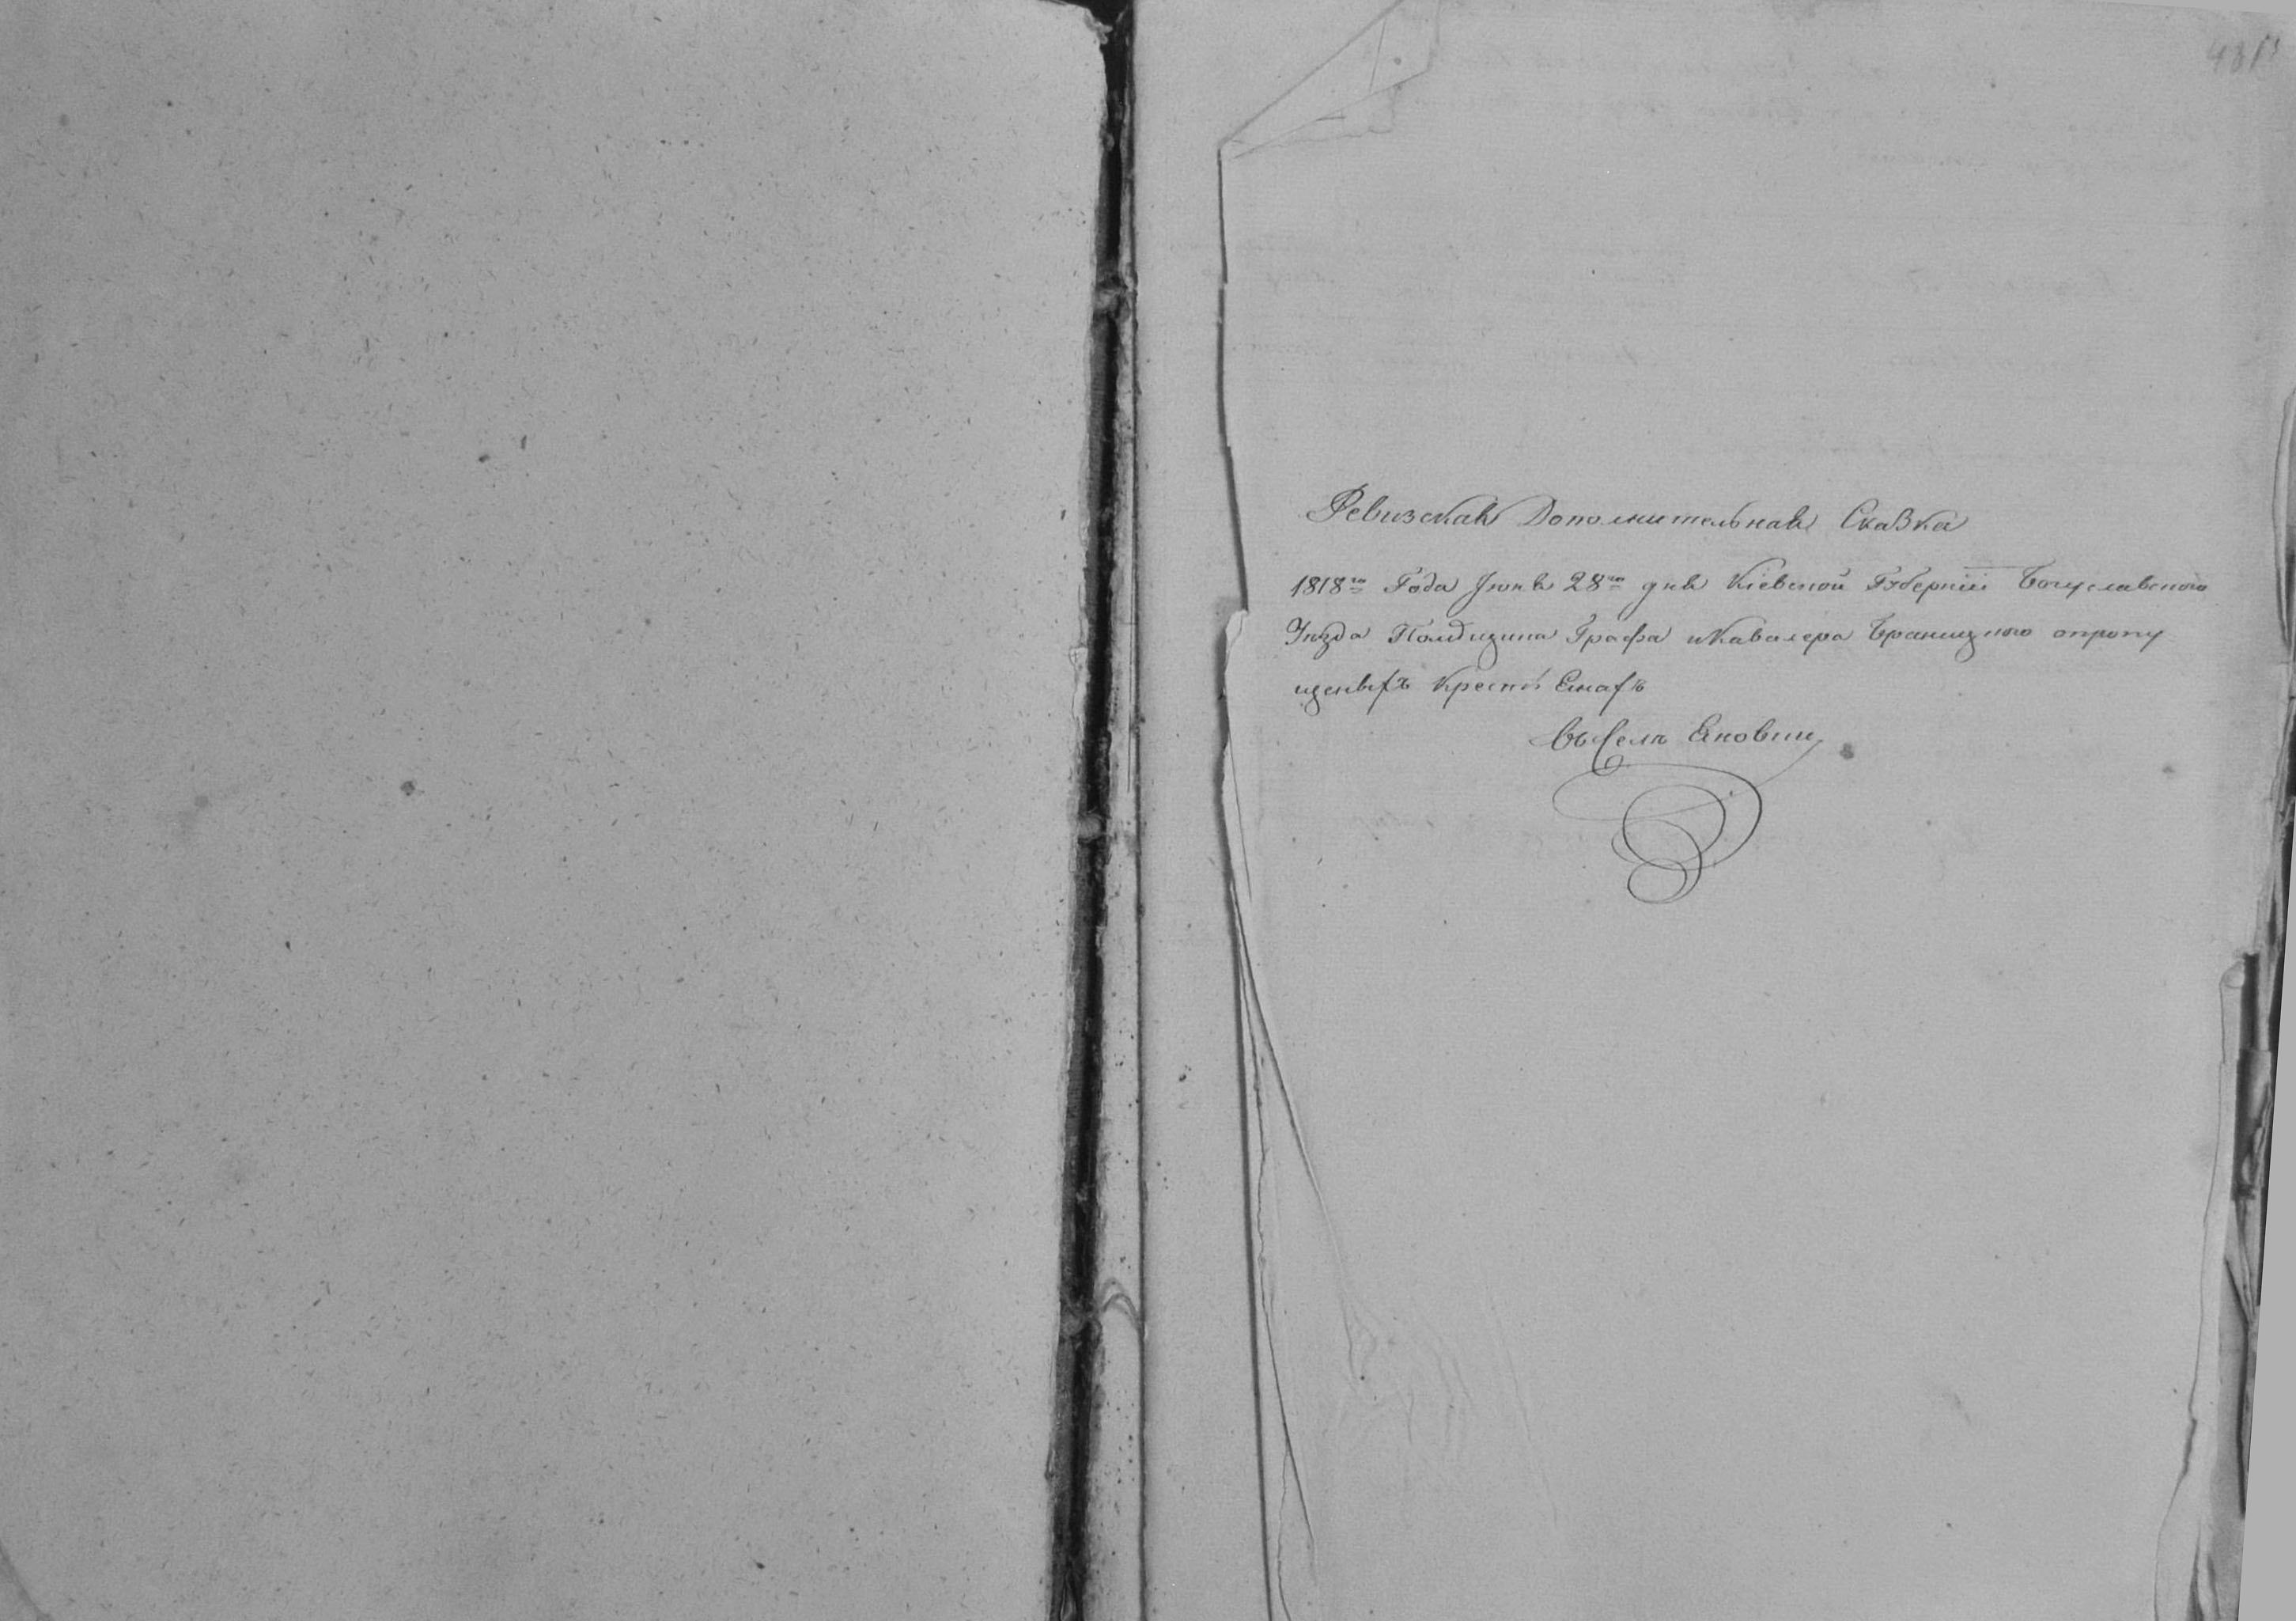 Ревизская Дополнительная Сказка
1818го Года Июня 28го дня Кіевской Губерніи Богуславского
Уѣзда Помѣщика Графа и Кавалера Браницкого о пропу
щенныхъ Крестьянахъ
въ Селѣ Яновки